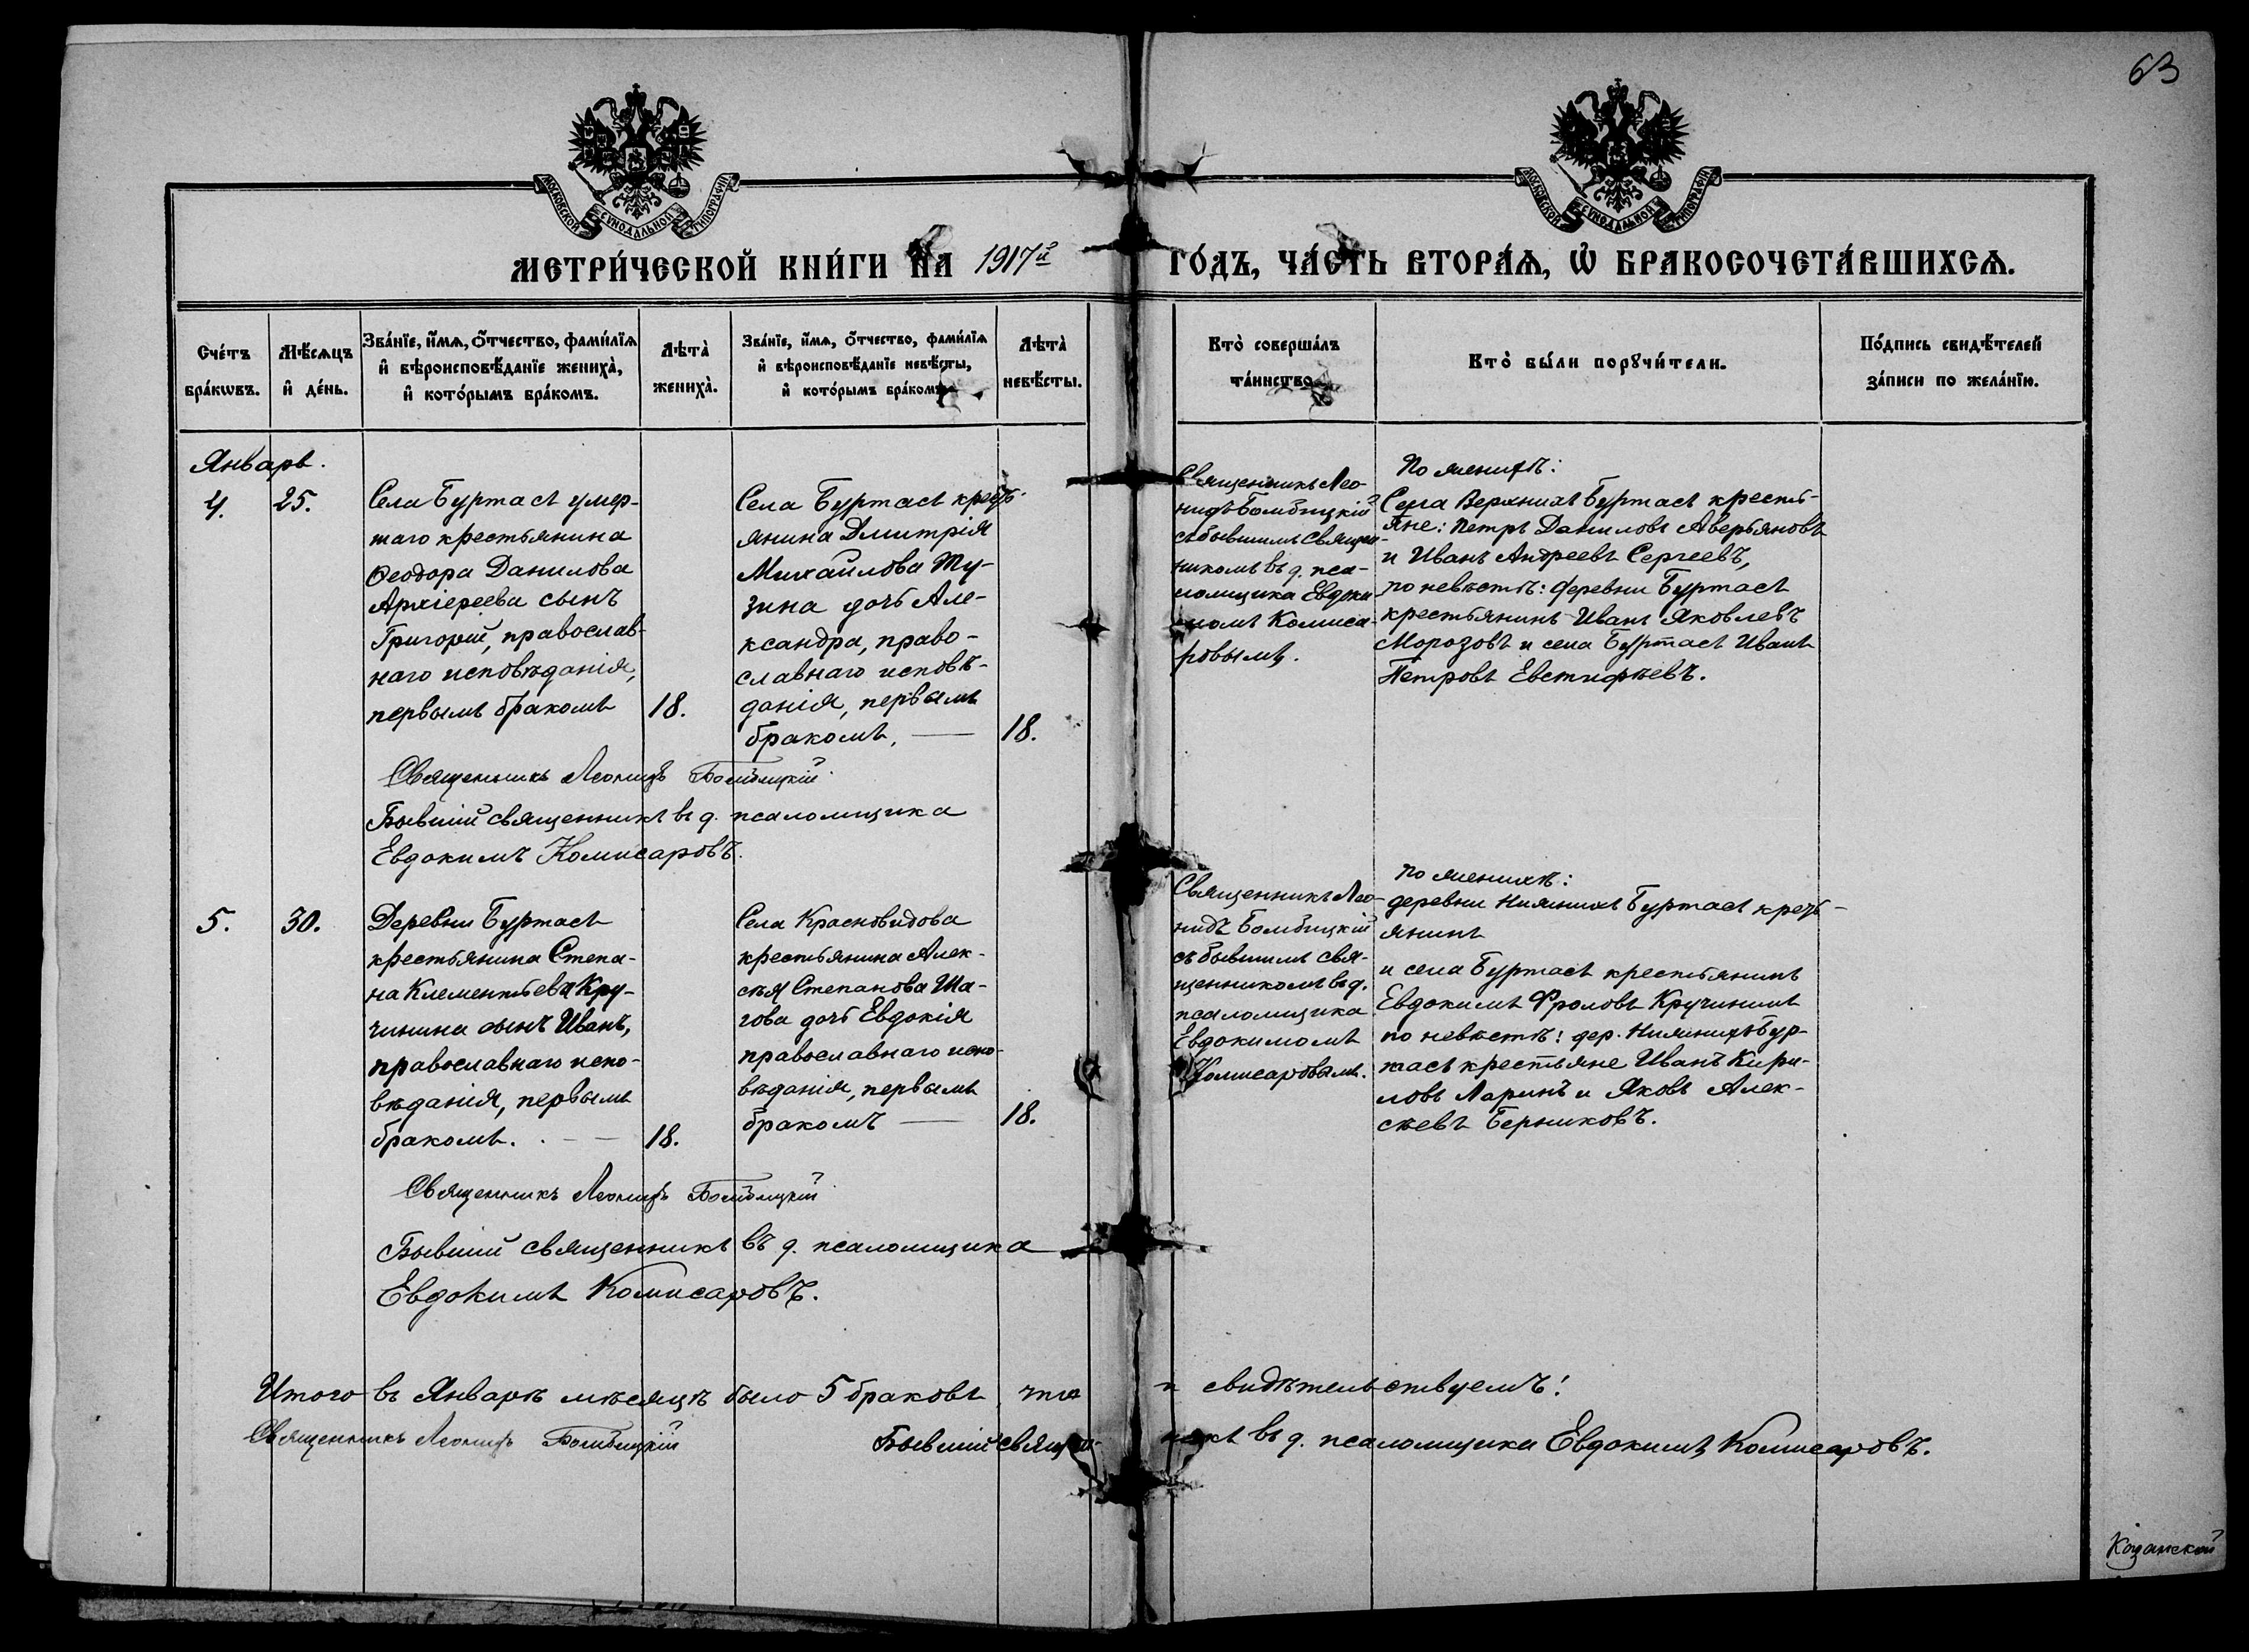 63
МОСКОВСКОЙ СѴНОДАЛЬНОЙ ТИПОГРАФІИ
МОСКОВСКОЙ СѴНОДАЛЬНОЙ ТИПОГРАФІИ
МЕТРИ́ЧЕСКОЙ КНИ́ГИ НА 1917й
ГО́ДЪ, ЧА́СТЬ ВТОРА́Ѧ, Ѡ БРАКОСОЧЕТА́ВШИХСѦ.
Сче́тъ
бра́кѡвъ.
Мѣ́сѧцъ
и҆ де́нь.
Зва́нїе, и҆́мѧ, ѻ҆́тчество, фами́лїѧ
и҆ вѣроисповѣ́данїе жениха̀,
и҆ кото́рымъ бра́комъ.
Лѣта̀
жениха̀.
Зва́нїе, и҆́мѧ, ѻ҆́тчество, фами́лїѧ
и҆ вѣроисповѣ́данїе невѣ́сты,
и҆ кото́рымъ бра́комъ.
Лѣта̀
невѣ́сты.
Кто̀ соверша́лъ
та́инство.
Кто̀ бы́ли порꙋчи́тели.
По́дпись свидѣ́телей
за́писи по жела́нїю.
Январь.
4.
25.
Села Буртасъ умер-
шаго крестьянина
Ѳеодора Данилова
Архіереева сынъ
Григорій, православ-
наго исповѣданія,
первымъ бракомъ
18.
Села Буртасъ кресть-
янина Димитрія
Михайлова Ту-
зина дочь Але-
ксандра, право-
славнаго исповѣ-
данія, первымъ
бракомъ, —
18.
Священникъ Лео-
нидъ Бомбицкій
съ бывшимъ священ-
никомъ въ д. пса-
ломщика Евдоки-
момъ Комиса-
ровымъ.
По женихѣ:
Села Верхнихъ Буртасъ кресть-
яне: Петръ Даниловъ Аверьяновъ
и Иванъ Андреевъ Сергеевъ,
по невѣстѣ: деревни Буртасъ
крестьянинъ Иванъ Яковлевъ
Морозовъ и села Буртасъ Иванъ
Петровъ Евстифѣевъ.
Священникъ Леонидъ Бомбицкій
Бывшій священникъ въ д. псаломщика
Евдокимъ Комисаровъ.
5.
30.
Деревни Буртасъ
крестьянина Степа-
на Клементьева Кру-
чинина сынъ Иванъ,
православнаго испо-
вѣданія, первымъ
бракомъ. —
18.
Села Красновидова
крестьянина Алек-
сѣя Степанова Ша-
гова дочь Евдокія
православнаго испо-
вѣданія, первымъ
бракомъ —
18.
Священникъ Лео-
нидъ Бомбицкій
съ бывшимъ свя-
щенникомъ въ д.
псаломщика
Евдокимомъ
Комисаровымъ.
По женихѣ:
деревни Нижнихъ Буртасъ кресть-
янинъ
и села Буртасъ крестьянинъ
Евдокимъ Фроловъ Кручининъ
по невѣстѣ: дер. Нижнихъ Бур-
тасъ крестьяне Иванъ Кири-
ловъ Ларинъ и Яковъ Алек-
сѣевъ Берниковъ.
Священникъ Леонидъ Бомбицкій
Бывшій священникъ въ д. псаломщика
Евдокимъ Комисаровъ.
Итого въ Январѣ мѣсяцѣ было 5 браковъ, что и свидѣтельствуемъ!
Священникъ Леонидъ Бомбицкій
Бывшій священникъ въ д. псаломщика Евдокимъ Комисаровъ.
Казанской